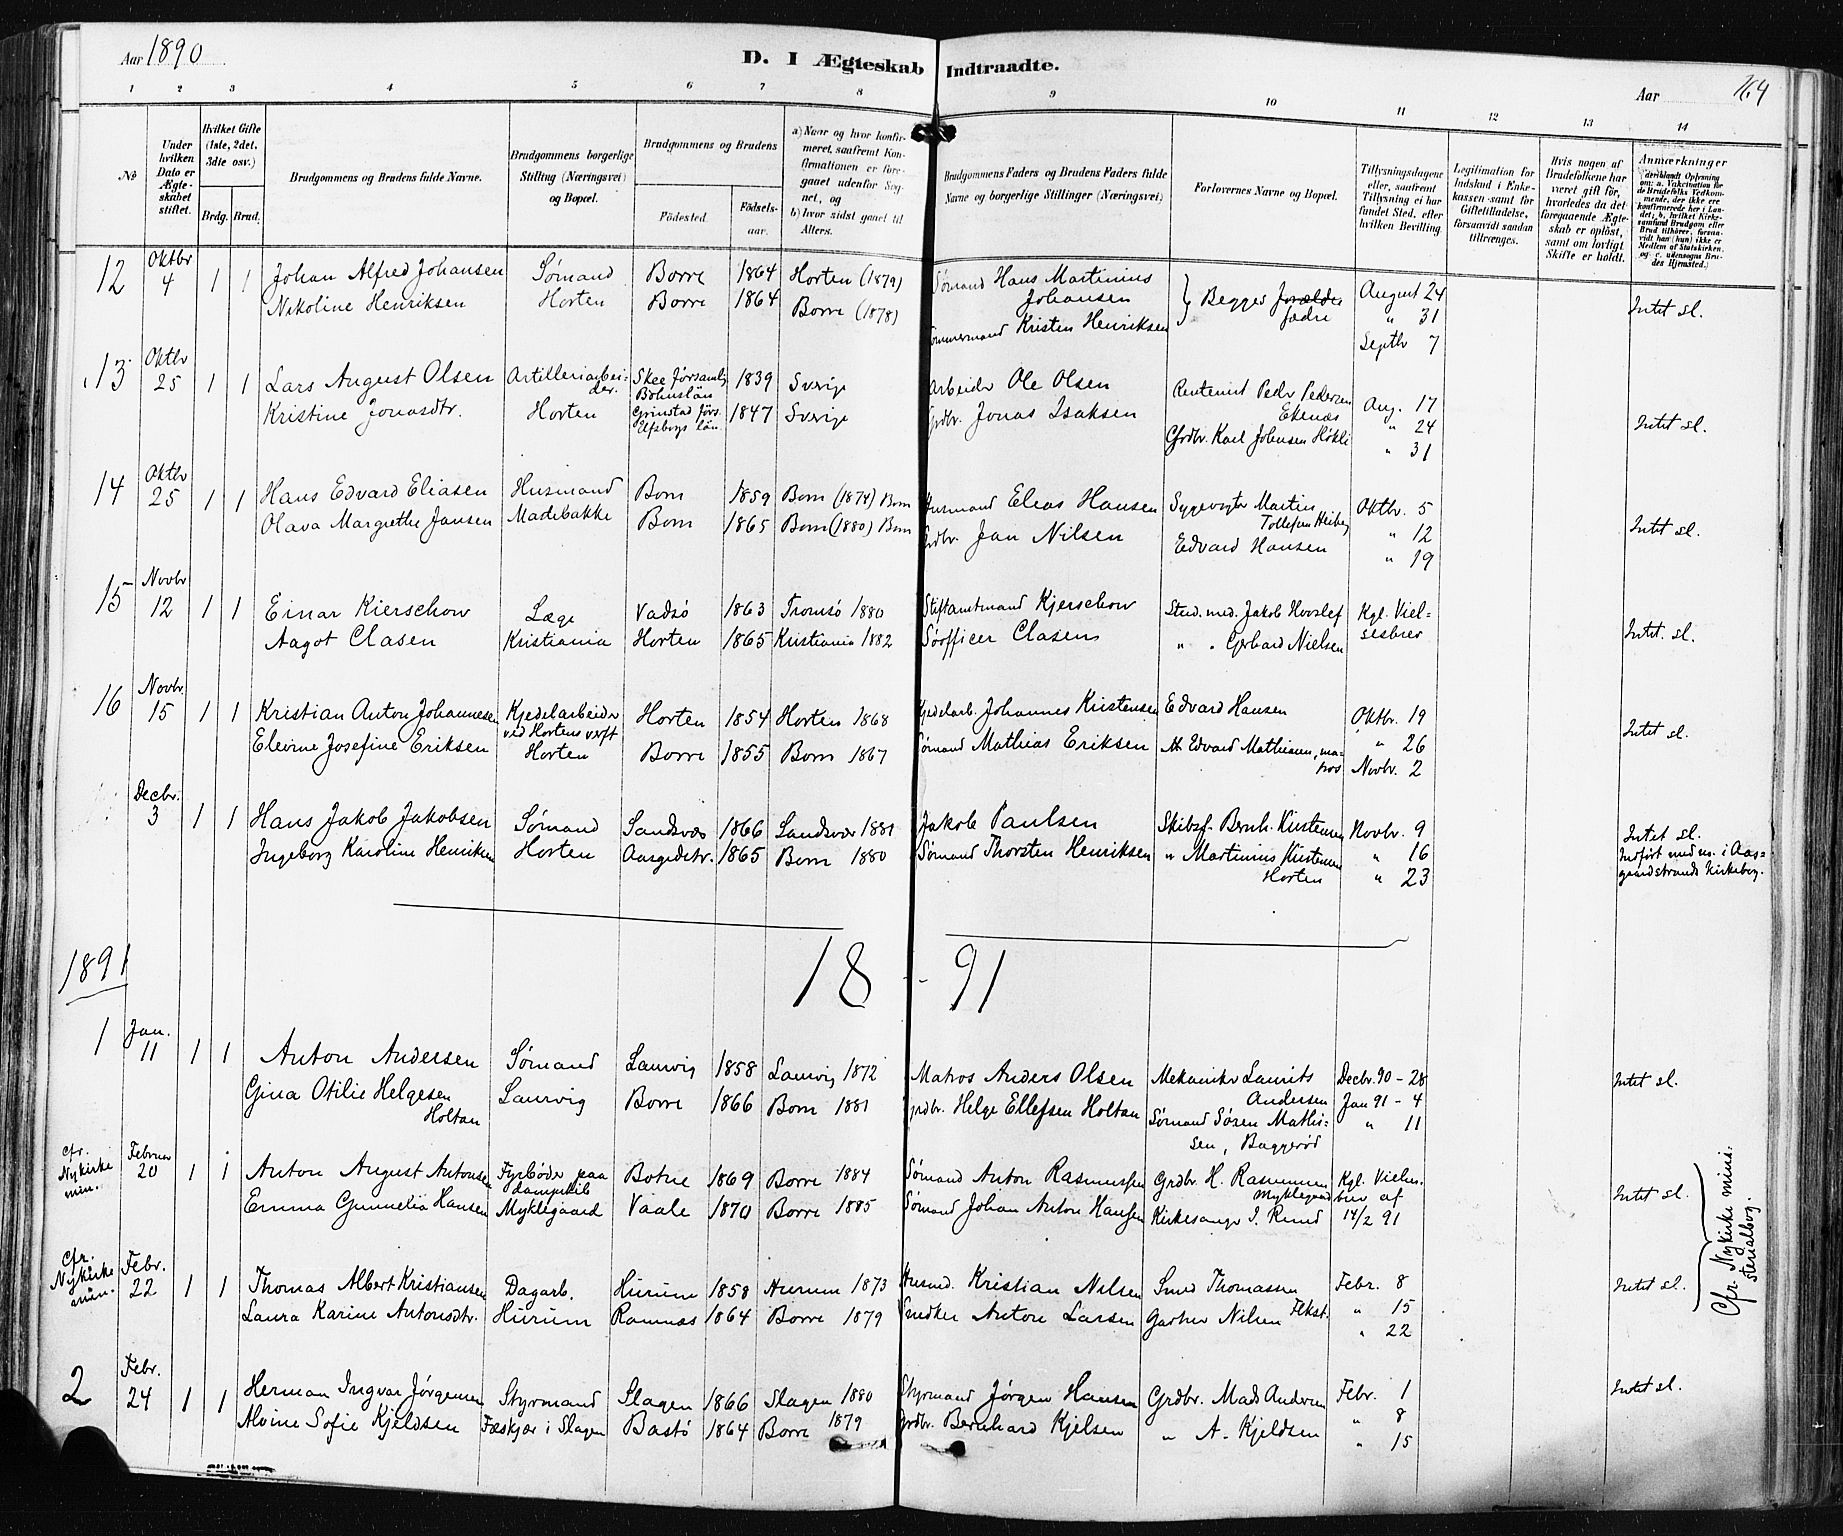 Aar 1890
D. I Ægteskab Indtraadte.
Aar 164
1 2 3 4 5 6 7 8 9 10 11 12 13 14
No
Under hvilken Dato er Ægteskabet stiftet.
Hvilket Gifte (1ste, 2det, 3die osv.)
Brdg. Brud.
Brudgommens og Brudens fulde Navne.
Brudgommens borgerlige Stilling (Næringsvei) og Bopæl.
Brudgommens og Brudens
Fødested. Fødselsaar.
a) Naar og hvor konfirmeret, saafremt Konfirmationen er foregaaet udenfor Sognet, og
b) hvor sidst gaaet til Alters.
Brudgommens Faders og Brudens Faders fulde Navne og borgerlige Stillinger (Næringsvei)
Forlovernes Navne og Bopæl.
Tillysningsdagene eller, saafremt Tillysning ei har fundet Sted, efter hvilken Bevilling.
Legitimation for Indskud i Enkekassen samt for Giftetilladelse, forsaavidt saadan tiltrænges.
Hvis nogen af Brudefolkene har været gift før, hvorledes da det foregaaende Ægteskab er opløst, samt om lovligt Skifte er holdt.
Anmærkninger
12 Oktbr 4 1 1 Johan Alfred Johansen Sømand Borre 1864 Horten (1879) Sømand Hans Martinius Johansen Begges Forældre fædre August 24
Nikoline Henriksen Horten Borre 1864 Borre (1878) Tømmermand Kristen Henriksen " 31 Septbr 7 Intet sl.
13 Oktbr 25 1 1 Lars August Olsen Artilleriarbeider Skee Førsamlg Bohuslän 1839 Sverige Arbeider Ole Olsen Rentenist Peder Pedersen Ekenæs Aug. 17
Kristine Jonasdtr. Horten Grinstad Førs. Elfsborgs län 1847 Sverige Grdbr. Jonas Isaksen Grdbr. Karl Johansen " 24 " 31 Intet sl.
14 Oktbr 25 1 1 Hans Edvard Eliasen Husmand Borre 1859 Borre (1874) Borre Husmand Elias Hansen Sygevogter Martin Tollefsen Oktbr. 5
Olava Margrethe Jansen Madebakke Borre 1865 Borre (1880) Borre Grdbr. Jan Nilsen Edvard Hansen " 12 " 19 Intet sl.
15 Novbr 12 1 1 Einar Kierschow Læge Vadsø 1863 Tromsø 1880 Stiftamtmand Kjerschow Stud. med. Jakob Hovslef Kgl. Vielsesbrev
Aagot Clasen Kristiania Horten 1865 Kristiania 1882 Søofficer Clasen " " Gerhard Nielsen Intet. sl.
16 Novbr. 15 1 1 Kristian Anton Johannesen Kjedelarbeider ved Hortens verft Horten 1854 Horten 1868 Kjedelarb. Johannes Kristensen Edvard Hansen Oktbr. 19
Elevine Josefine Eriksen Horten Borre 1855 Borre 1867 Sømand Mathias Eriksen Edvard Mathiasen, matros " 26 Novbr. 2 Intet sl.
Decbr. 3 1 1 Hans Jakob Jakobsen Sømand Sandsvær 1866 Sandsvær 1881 Jakob Paulsen Skibsf. Bernh. Kristensen Novbr. 9
Ingeborg Karoline Henriksen Horten Aasgrdstr. 1865 Borre 1880 Sømand Thorsten Henriksen " Martinius Kristensen Horten " 16 " 23 Intet sl. Indført med no. i Aasgaardstrands Kirkebog.
1891
18 - 91
1 Jan. 11 1 1 Anton Andersen Sømand Laurvig 1858 Laurvig 1872 Matros Anders Olsen Mekaniker Laurits Andersen Decbr. 90 - 28
Gina Otilie Helgesen Holtan Laurvig Borre 1866 Borre 1881 Grdbr. Helge Ellefsen Holtan Sømand Søren Mathisen, Baggerød Jan 91 - 4 " 11 Intet sl.
cfr. Nykirke min. Februar 20 1 1 Anton August Antonsen Fyrbøder paa dampskib Botne 1869 Borre 1884 Sømand Anton Rasmussen Grdbr. H. Rasmussen Myklegaard Kgl. Vielsesbrev af
Emma Gunnelia Hansen Myklegaard Vaale 1870 Borre 1885 Sømand Johan Anton Hansen Kirkesanger I. Rund 14/2 91 Intet sl.
cfr. Nykirke min. Febr. 22 1 1 Thomas Albert Kristiansen Dagarb. Hurum 1858 Hurum 1873 Husmd. Kristian Nilsen Smed Thomassen Febr. 8
Laura Karine Antonsdtr. Hurum Ramnæs 1864 Borre 1879 Snedker Anton Larsen Gartner Nilsen " 15 " 22 Intet sl.
Cfr. Nykirke ministerialbog.
2 Febr. 24 1 1 Herman Ingvar Jørgensen Styrmand Slagen 1866 Slagen 1880 Styrmand Jørgen Hansen Grdbr. Mads Andersen Febr. 1
Alvine Sofie Kjeldsen Fæskjær i Slagen Bastø 1864 Borre 1879 Grdbr. Bernhard Kjelsen " A. Kjeldsen " 8 " 15 Intet sl.